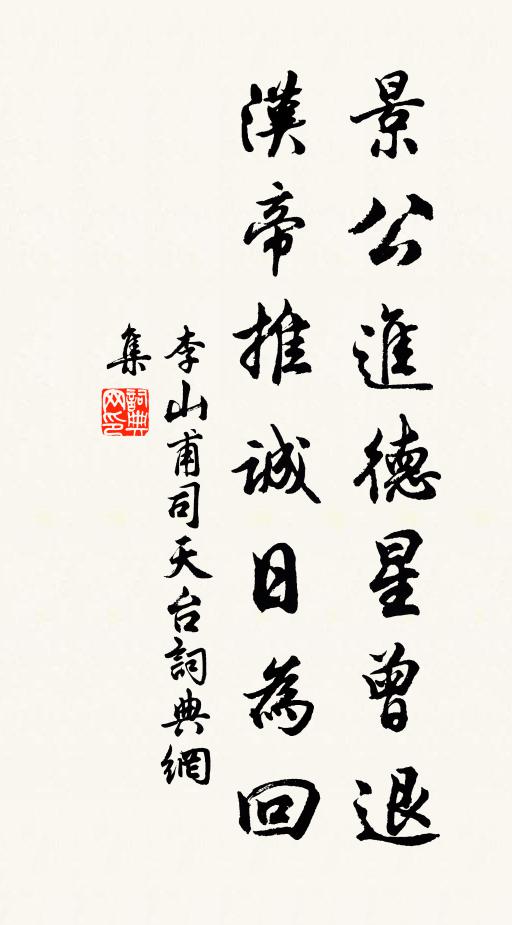 景公進德星曾退
漢帝推誠日為回
李山甫司天台詞典網
集
詞典
网印